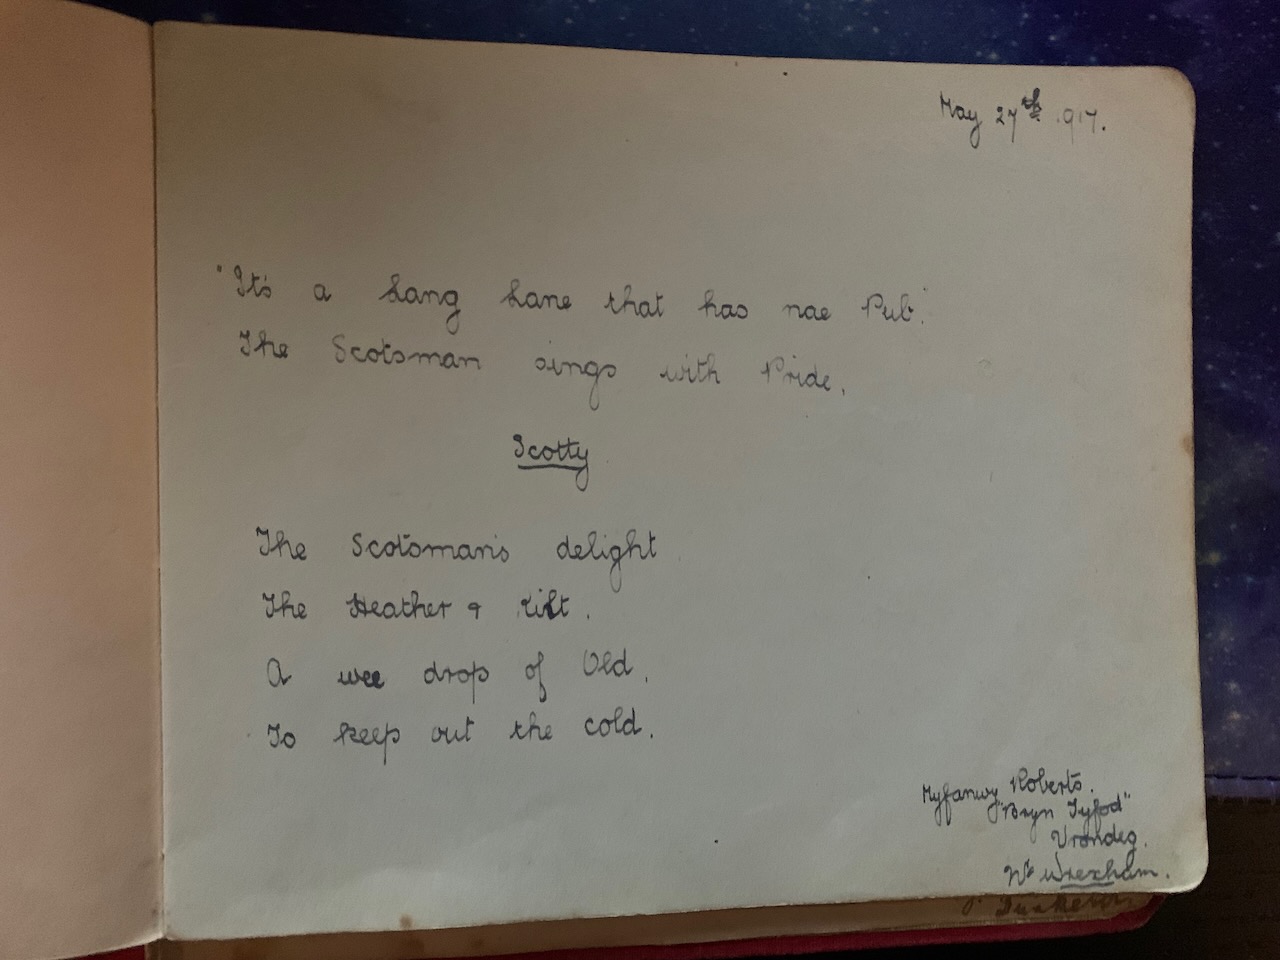 May 27th 1917.
"It's a Lang Lane that has nae Pub."
The Scotsman sings with Pride.
Scotty
The Scotsman's delight
The Heather & Kilt.
A wee drop of Old.
To keep out the cold.
Myfanwy Roberts.
"Bryn Tyfod"
Vrondeg.
Nr Wrexham.